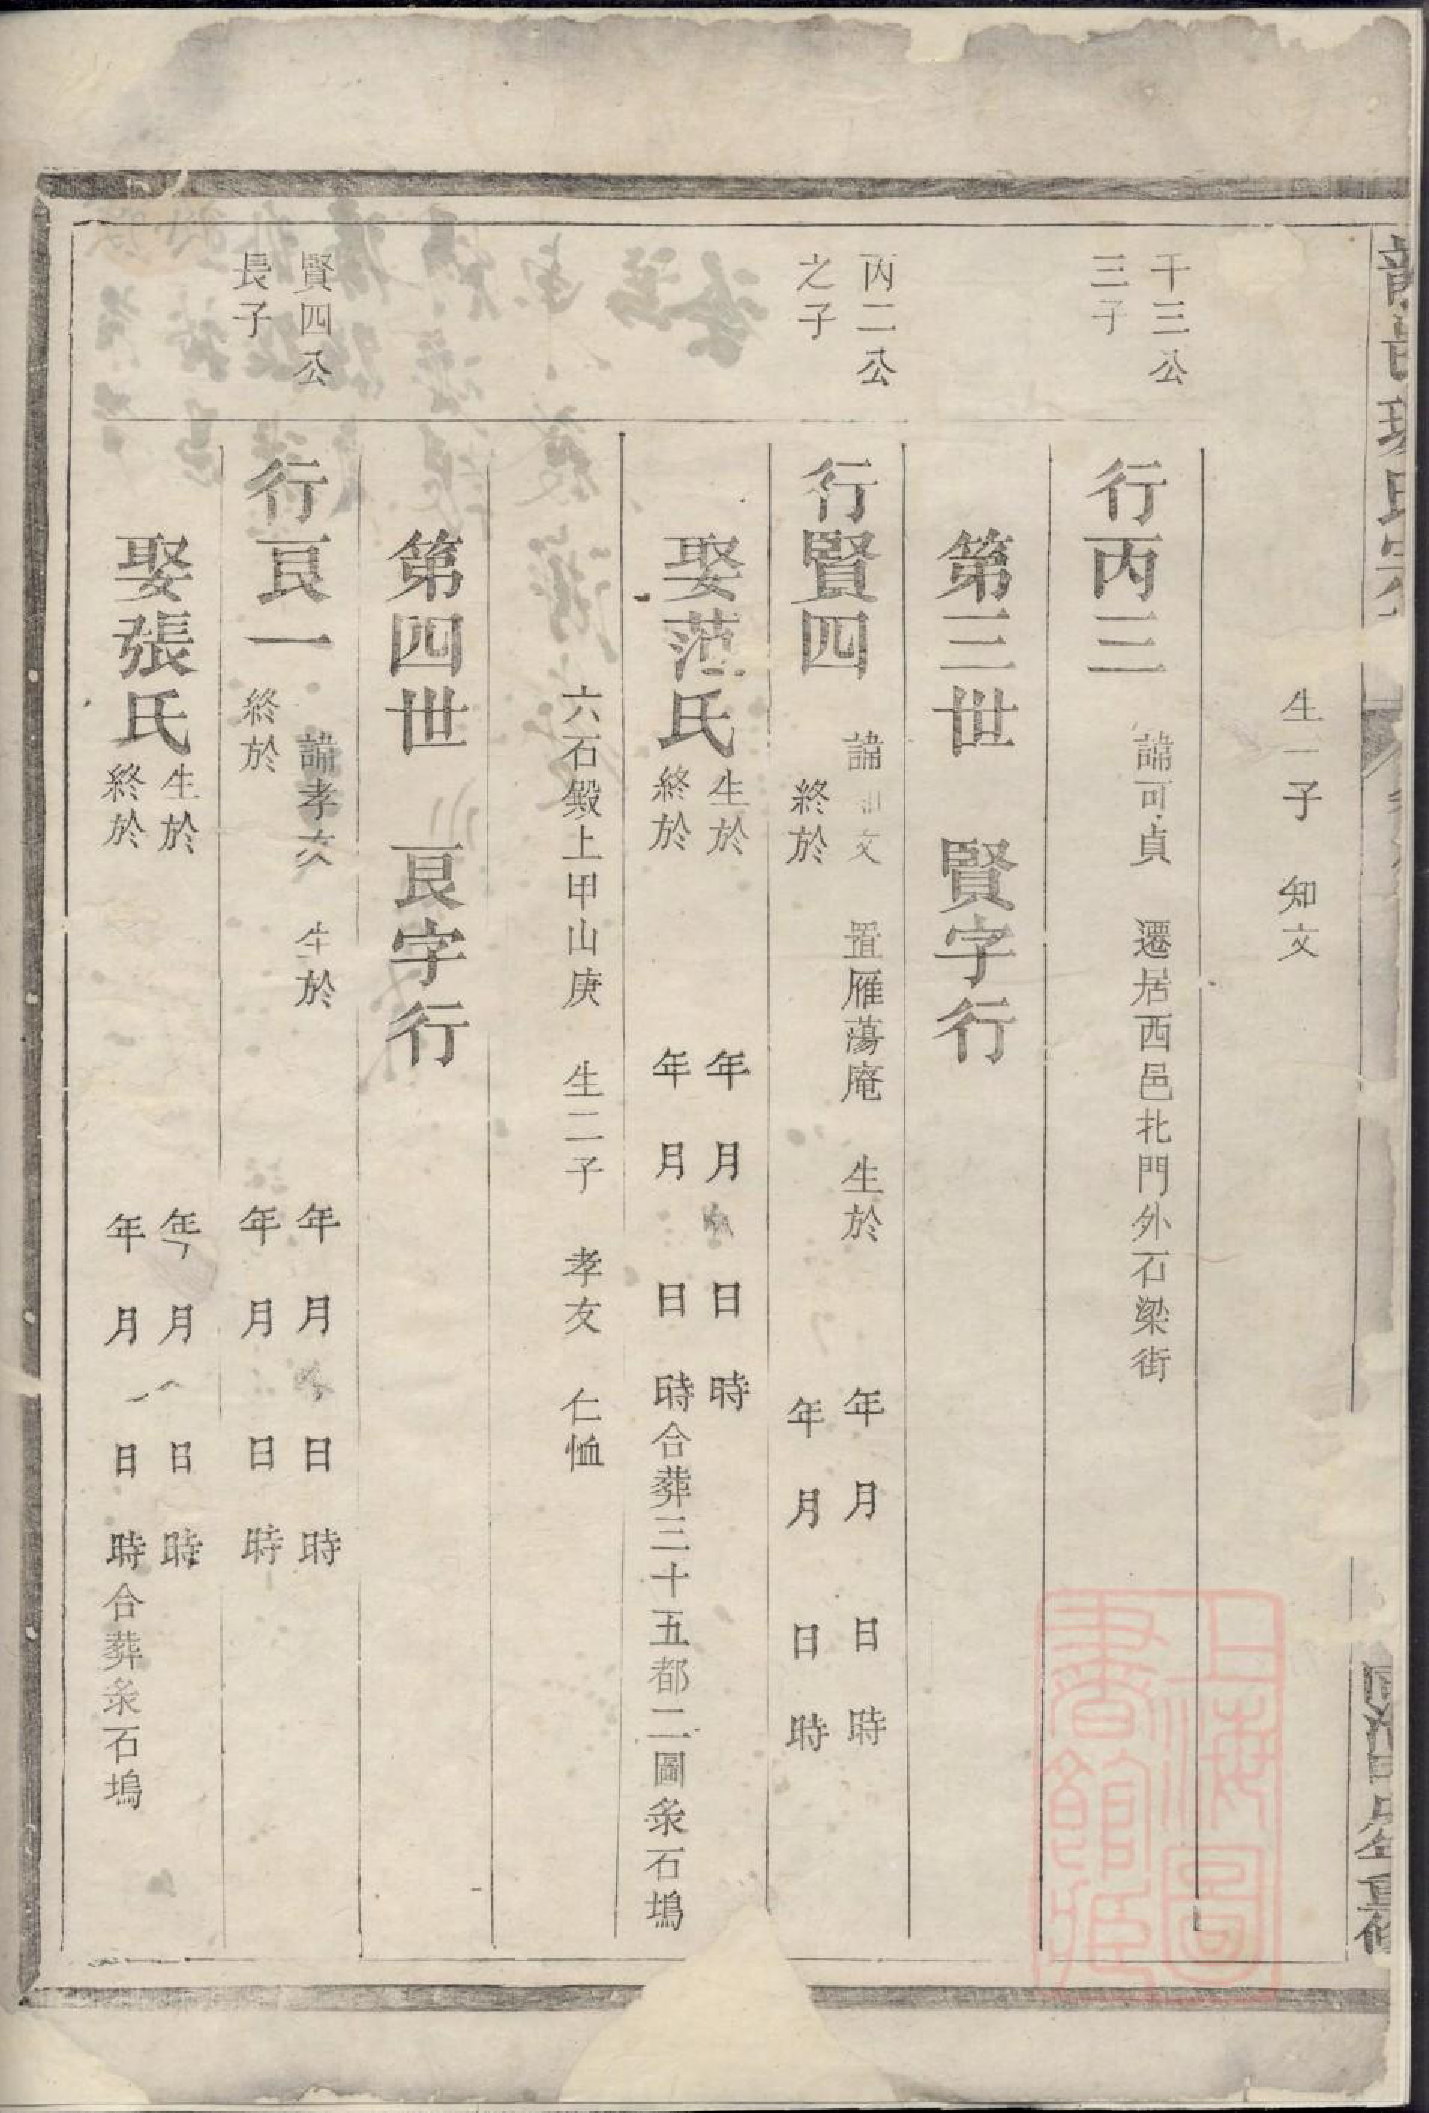 生一子　知文
千三公
三子
行丙三
諱可貞　遷居西邑北門外石梁街
第三世　賢字行
丙二公
之子
行賢四
諱文　置雁蕩庵　生於　年　月　日　時
終於　年　月　日　時
娶范氏
生於　年　月　日　時
終於　年　月　日　時合葬三十五都二圖粂石塢
六石殿上甲山庚　生二子　孝友　仁恤
第四世　良字行
賢四公
長子
行良一
諱孝友　生於　年　月　日　時
終於　年　月　日　時
娶張氏
生於　年　月　日　時
終於　年　月　日　時合葬粂石塢
上海圖
書館藏